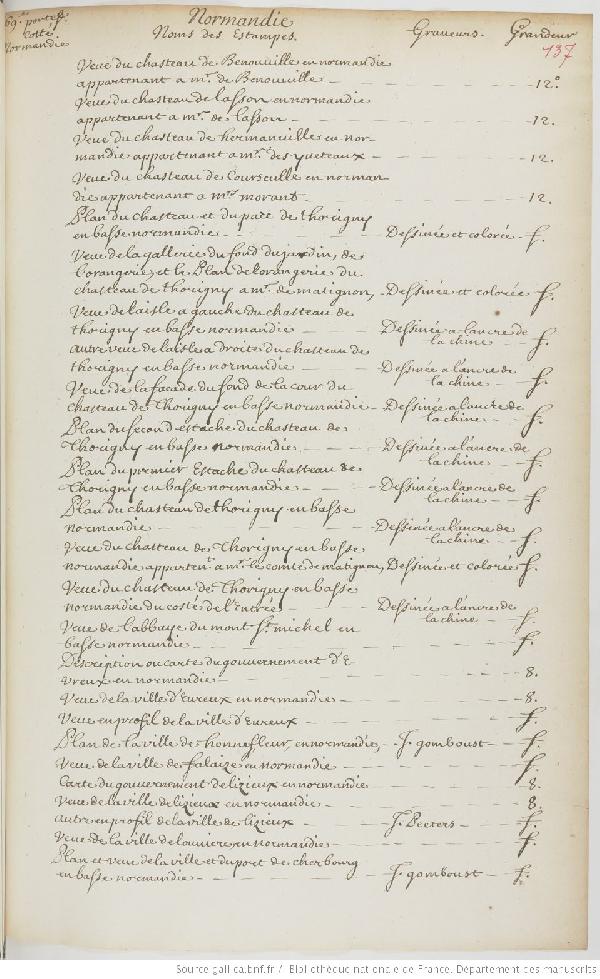 69.e portef.
Cotté.
Normandie
Normandie
Noms des Estampes. Graueurs. Grandeur
137
Veue du chasteau de Benouuille en normandie
appartenant a mr. de Benouuille - 12.o
Veue du chasteau de lasson en normandie
appartenant a mr. de lasson - 12.
Veue du chasteau de hermanuille en nor-
mandie appartenant a mr. des yueteaux - 12.
Veue du chasteau de Courseulle en norman
die appartenant a mrs. morant - 12.
Plan du chasteau et du parc de thorigny
en basse normandie - Dessinée et colorée - f.
Veue de la gallerie du fond du jardin, de
lorangerie, et le Plan de lorangerie du
chasteau de thorigny a mr. de matignon, Dessinée et colorée f.
Veue de laisle a gauche du chasteau de
thorigny en basse normandie - Dessinée a lancre de
la chine - f.
autre veue de laisle a droite du chasteau de
thorigny en basse normandie - Dessinée a l'ancre de
la chine - f.
Veue de la facade du fond de la cour du
chasteau de Thorigny en basse normandie - Dessinée a l'ancre de
la chine - f.
Plan du second estache du chasteau de
Thorigny en basse normandie - Dessinée a l'ancre de
la chine - f.
Plan du premier Estache du chasteau de
Thorigny en basse normandie - Dessinée a lancre de
la chine - f.
Plan du chasteau de thorigny en basse
normandie - Dessinée a l'ancre de
la chine - f.
Veue du chatteau de Thorigny en basse
normandie appartent. a mr. le comte de matignon, Dessinée et colorée f.
Veue du chasteau de Thorigny en basse
normandie du costé de l'Entrée - Dessinée a l'ancre de
la chine - f.
Veue de l'abbaye du mont St. michel en
basse normandie - f.
Discription ou carte du gouuernement d'E
vreux en normandie - 8.
Veue de la ville d'Eureux en normandie - 8.
Veue en profil de la ville d'Eureux - f.
Plan de la ville de honnefleur, en normandie, - J. gomboust - f.
Veue de la ville de falaize en normandie - f.
Carte du gouuernement de lizieux en normandie - 8.
Veue de la ville de lizieux en normandie - 8.
autre en profil de la ville de lizieux - J. Peeters - f.
Veue de la ville de en normandie - f.
Plan et veue de la ville et du port de cherbourg
en basse normandie - J. gomboust - f.
Source gallica.bnf.fr / Bibliothèque nationale de France. Département des manuscrits